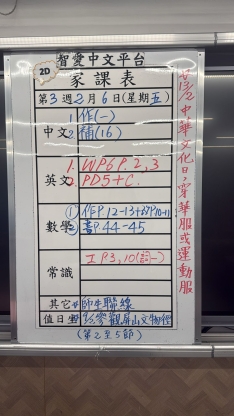 智愛中文平台
2D
家課表
第3週2月6日(星期五)
中文
1 作(一)
2 補(16)
英文
1. WP6P.2,3
2. PD5+C.
數學
① 作P.12-13+
② 書P.44-45
常識
工P.3,10
其它
師生聯線
值日生
參觀屏山文物徑
(第2至5節)
中華文化日,穿華服或運動服